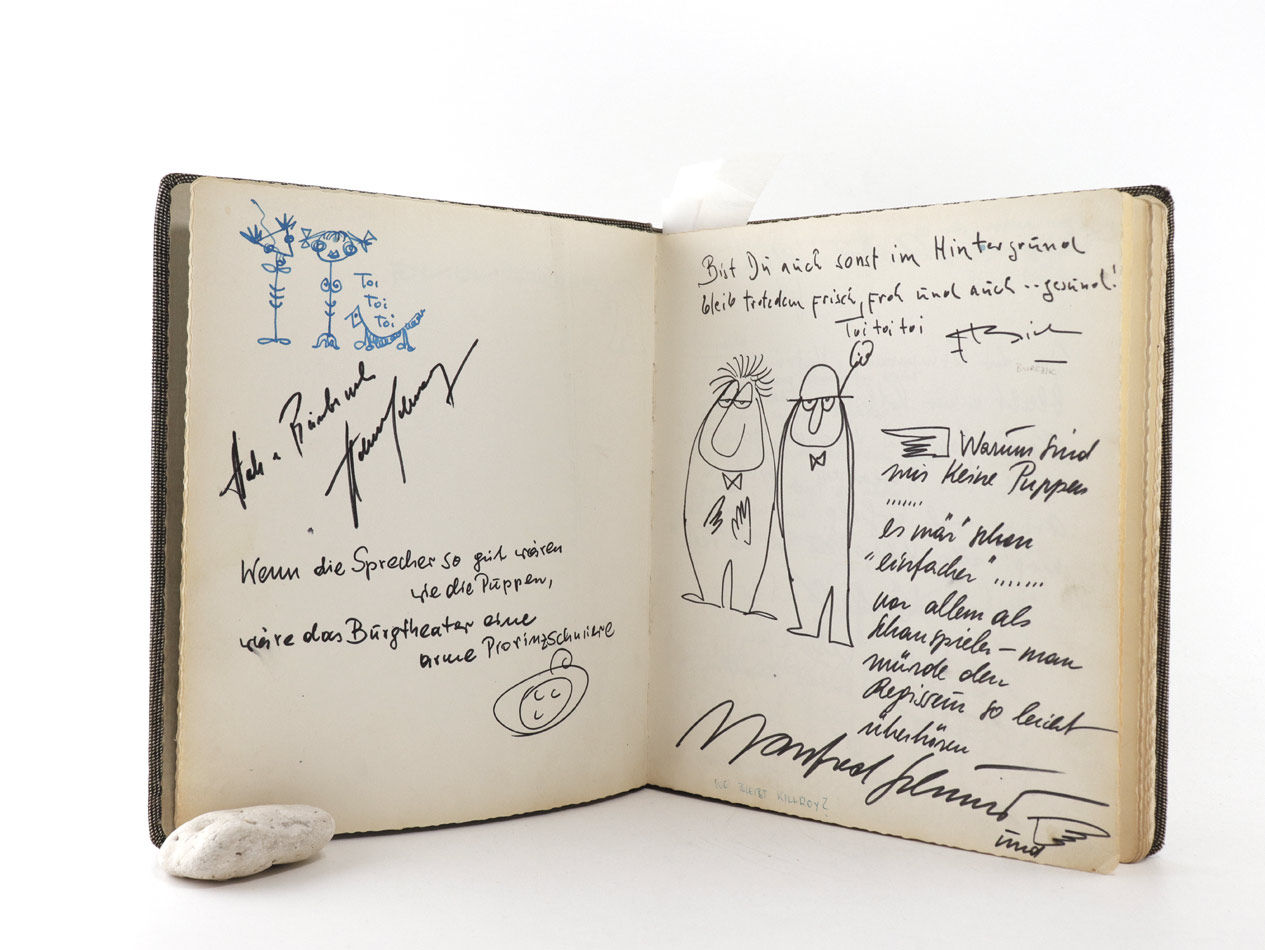 Toi
Toi
Toi
Wenn die Sprecher so gut wären
wie die Puppen,
wäre das Burgtheater eine
arme Provinzschmiere
Bist Du auch sonst im Hintergrund
bleib trotzdem frisch, froh und auch -- gesund!
Toi toi toi
Warum sind
wir keine Puppen
.......
es wär' schon
"einfacher" .......
vor allem als
Schauspieler – man
würde den
Regisseur so leicht
überhören
Manfred Schmid
und
BLEIBT KILLROY?